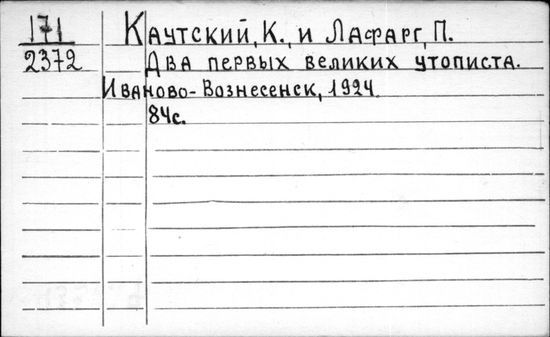 171 Каутский, К., и Лафарг, П.
2372 Два первых великих утописта.
Иваново-Вознесенск, 1924
84с.